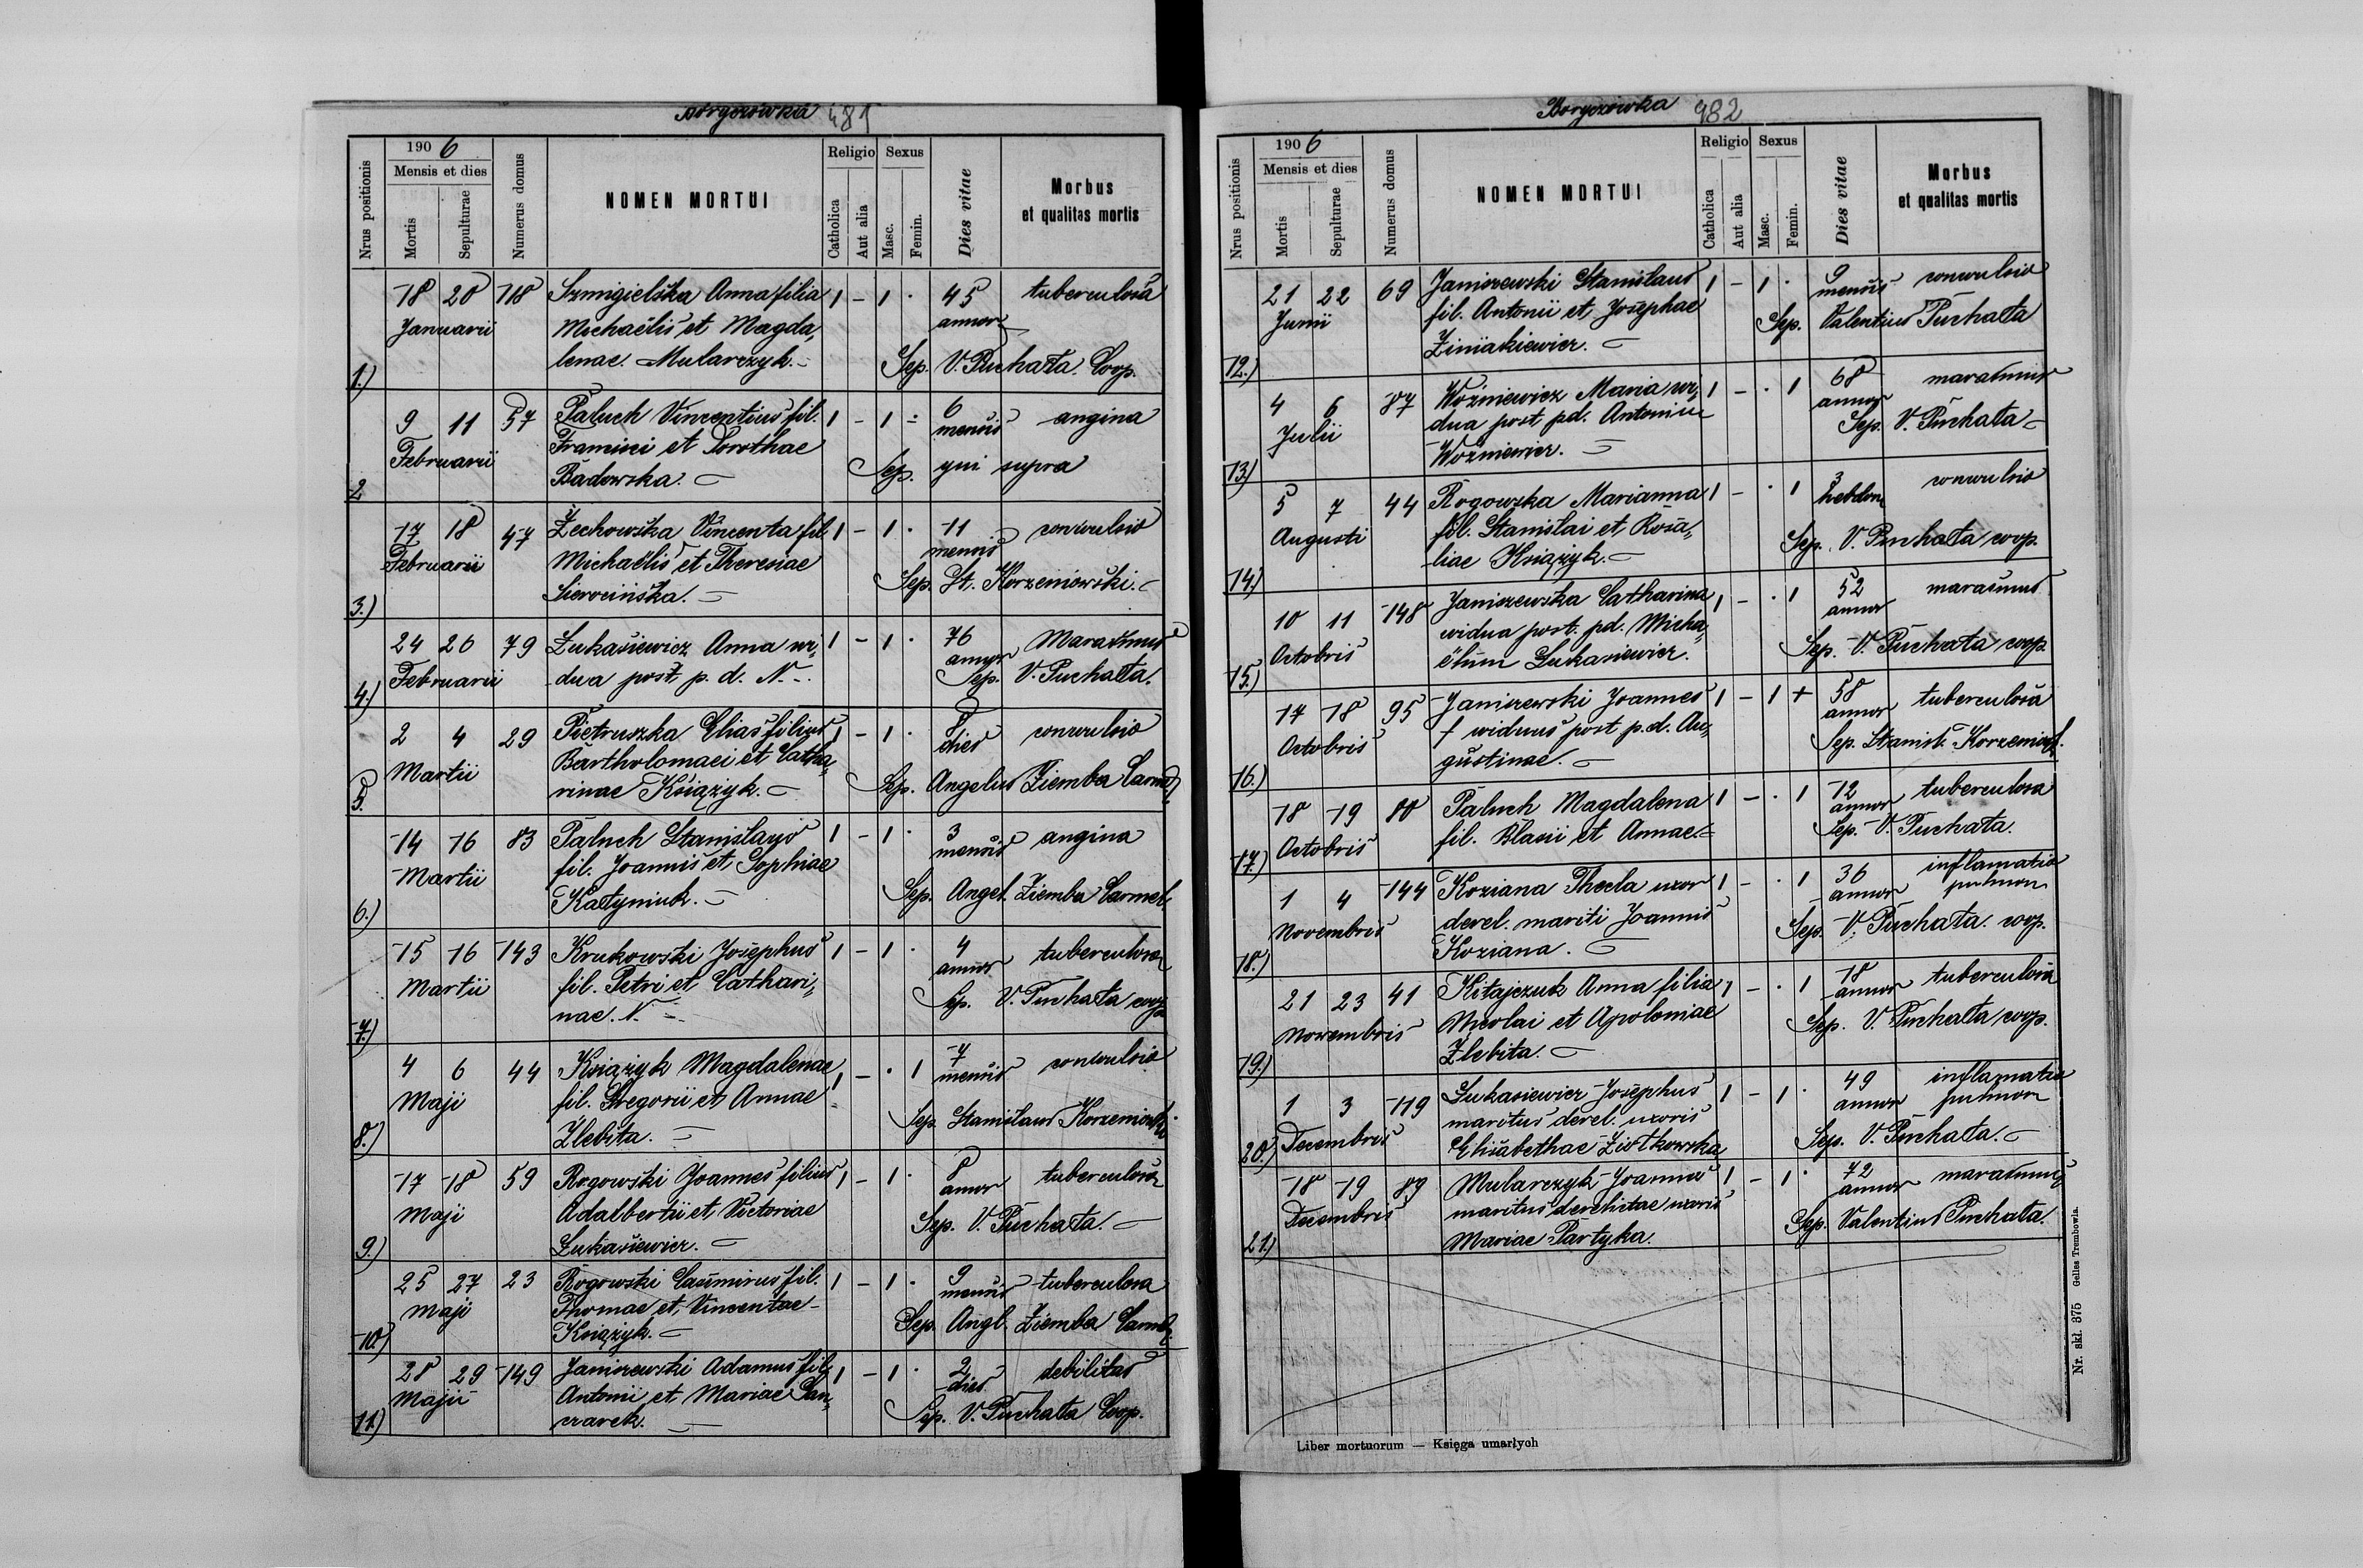 Borycówka 481
Nrus positionis
190 6
Mensis et dies
Mortis
Sepulturae
Numerus domus
NOMEN MORTUI
Religio
Catholica
Aut alia
Sexus
Masc.
Femin.
Dies vitae
Morbus
et qualitas mortis
18 20 118 Szmigielska Anna filia 1 – 1 · 45 tuberculosa
Januarii Michaëlis et Magda, annor
lenae Mularczyk. – Sep. V. Puchała Coop.
1.)
9 11 57 Paluch Vincentius fil. 1 – 1 · 6 angina
Februarii Francisci et Dorothae mensis
Badowska. – Sep. qui supra
2
17 18 47 Żechowska Vincenta fil. 1 – 1 · 11 convulsio
Februarii Michaëlis et Theresiae mensis
Sep. St. Korzeniowski. –
3.)
24 26 79 Łukasiewicz Anna vi, 1 – 1 · 76 Marasmus
annor
Februarii dua post p. d. N. – Sep. V. Puchała.
4.)
2 4 29 Pietruszka Elias filius 1 – 1 · 8 convulsio
Martii Bartholomaei et Catha, dies
rinae Książyk. – Sep. Angelus Ziemba Carm
5.
14 16 83 Paluch Stanislaus 1 – 1 · 3 angina
Martii fil. Joannis et Sophiae mensis
Katyniuk. – Sep. Angel. Ziemba Carmel.
6.)
15 16 143 Krukowski Josephus 1 – 1 · 4 tuberculosa
Martii fil. Petri et Cathari, annor
nae N. – Sep. V. Puchała coop
7.)
4 6 44 Książyk Magdalenae 1 – · 1 7 convulsio
Maji fil. Gregorii et Annae mensis
Zlebita. – Sep. Stanislaus Korzeniowski
8.)
17 18 59 Rogowski Joannes filius 1 – 1 · 8 tuberculosa
Maji Adalbertii et Victoriae annor
Łukasiewicz. – Sep. V. Puchała. –
9.)
25 27 23 Rogowski Casimirus fil. 1 – 1 · 9 tuberculosa
Maji Thomae et Vincentae mensis
Książyk. – Sep. Angl. Ziemba Carmel.
10.)
28 29 149 Janiszewski Adamus fil. 1 – 1 · 2 debilitas
Majii Antonii et Mariae Pan, dies
czarek. – Sep. V. Puchała Coop.
11.)
Borycówka 982
Nrus positionis
190 6
Mensis et dies
Mortis
Sepulturae
Numerus domus
NOMEN MORTUI
Religio
Catholica
Aut alia
Sexus
Masc.
Femin.
Dies vitae
Morbus
et qualitas mortis
21 22 69 Janiszewski Stanislaus 1 – 1 · 9 convulsio
Junii fil. Antonii et Josephae mensis
Sep. Valentius Puchała
12.)
4 6 87 Woźniewicz Maria vi, 1 – · 1 68 marasmus
Julii dua post pd. Antonium annor
Woźniewicz. – Sep. V. Puchała –
13.)
5 7 44 Rogowska Marianna 1 – · 1 3 convulsio
Augusti fil. Stanislai et Rosa, hebdom
liae Książyk. – Sep. V. Puchała coop.
14.)
10 11 148 Janiszewska Catharina 1 – · 1 52 marasmus
Octobris vidua post. pd. Micha, annor
ëlum Lukasiewicz. Sep. V. Puchała coop.
15.)
17 18 95 Janiszewski Joannes 1 – 1 + 58 tuberculosa
Octobris † viduus post p.d. Au, annor
gustinae. – Sep. Stanisł. Korzeniowsk.
16.)
18 19 80 Paluch Magdalena 1 – · 1 12 tuberculosa
Octobris fil. Blasii et Annae. – annor
Sep. V. Puchała.
17.)
1 4 144 Koziana Thecla uxor 1 – · 1 36 inflamatio
Novembris derel. mariti Joannis annor pulmon
Koziana. – Sep. V. Puchała. coop.
18.)
21 23 41 Kitajczuk Anna filia 1 – · 1 18 tuberculosa
Novembris Nicolai et Apoloniae annor
Zlebita. – Sep. V. Puchała coop.
19.)
1 3 119 Lukasiewicz Josephus 1 – 1 · 49 inflamatio
Decembris maritus derel. uxoris annor pulmon
Elisabethae Ziółkowska Sep. V. Puchała. –
20.)
18 19 89 Mularczyk Joannes 1 – 1 · 72 marasmus
Decembris maritus derelictae uxoris annor
Mariae Partyka. Sep. Valentius Puchała.
21.)
Liber mortuorum — Księga umarłych
Nr. skł. 375 Gelles Trembowla.